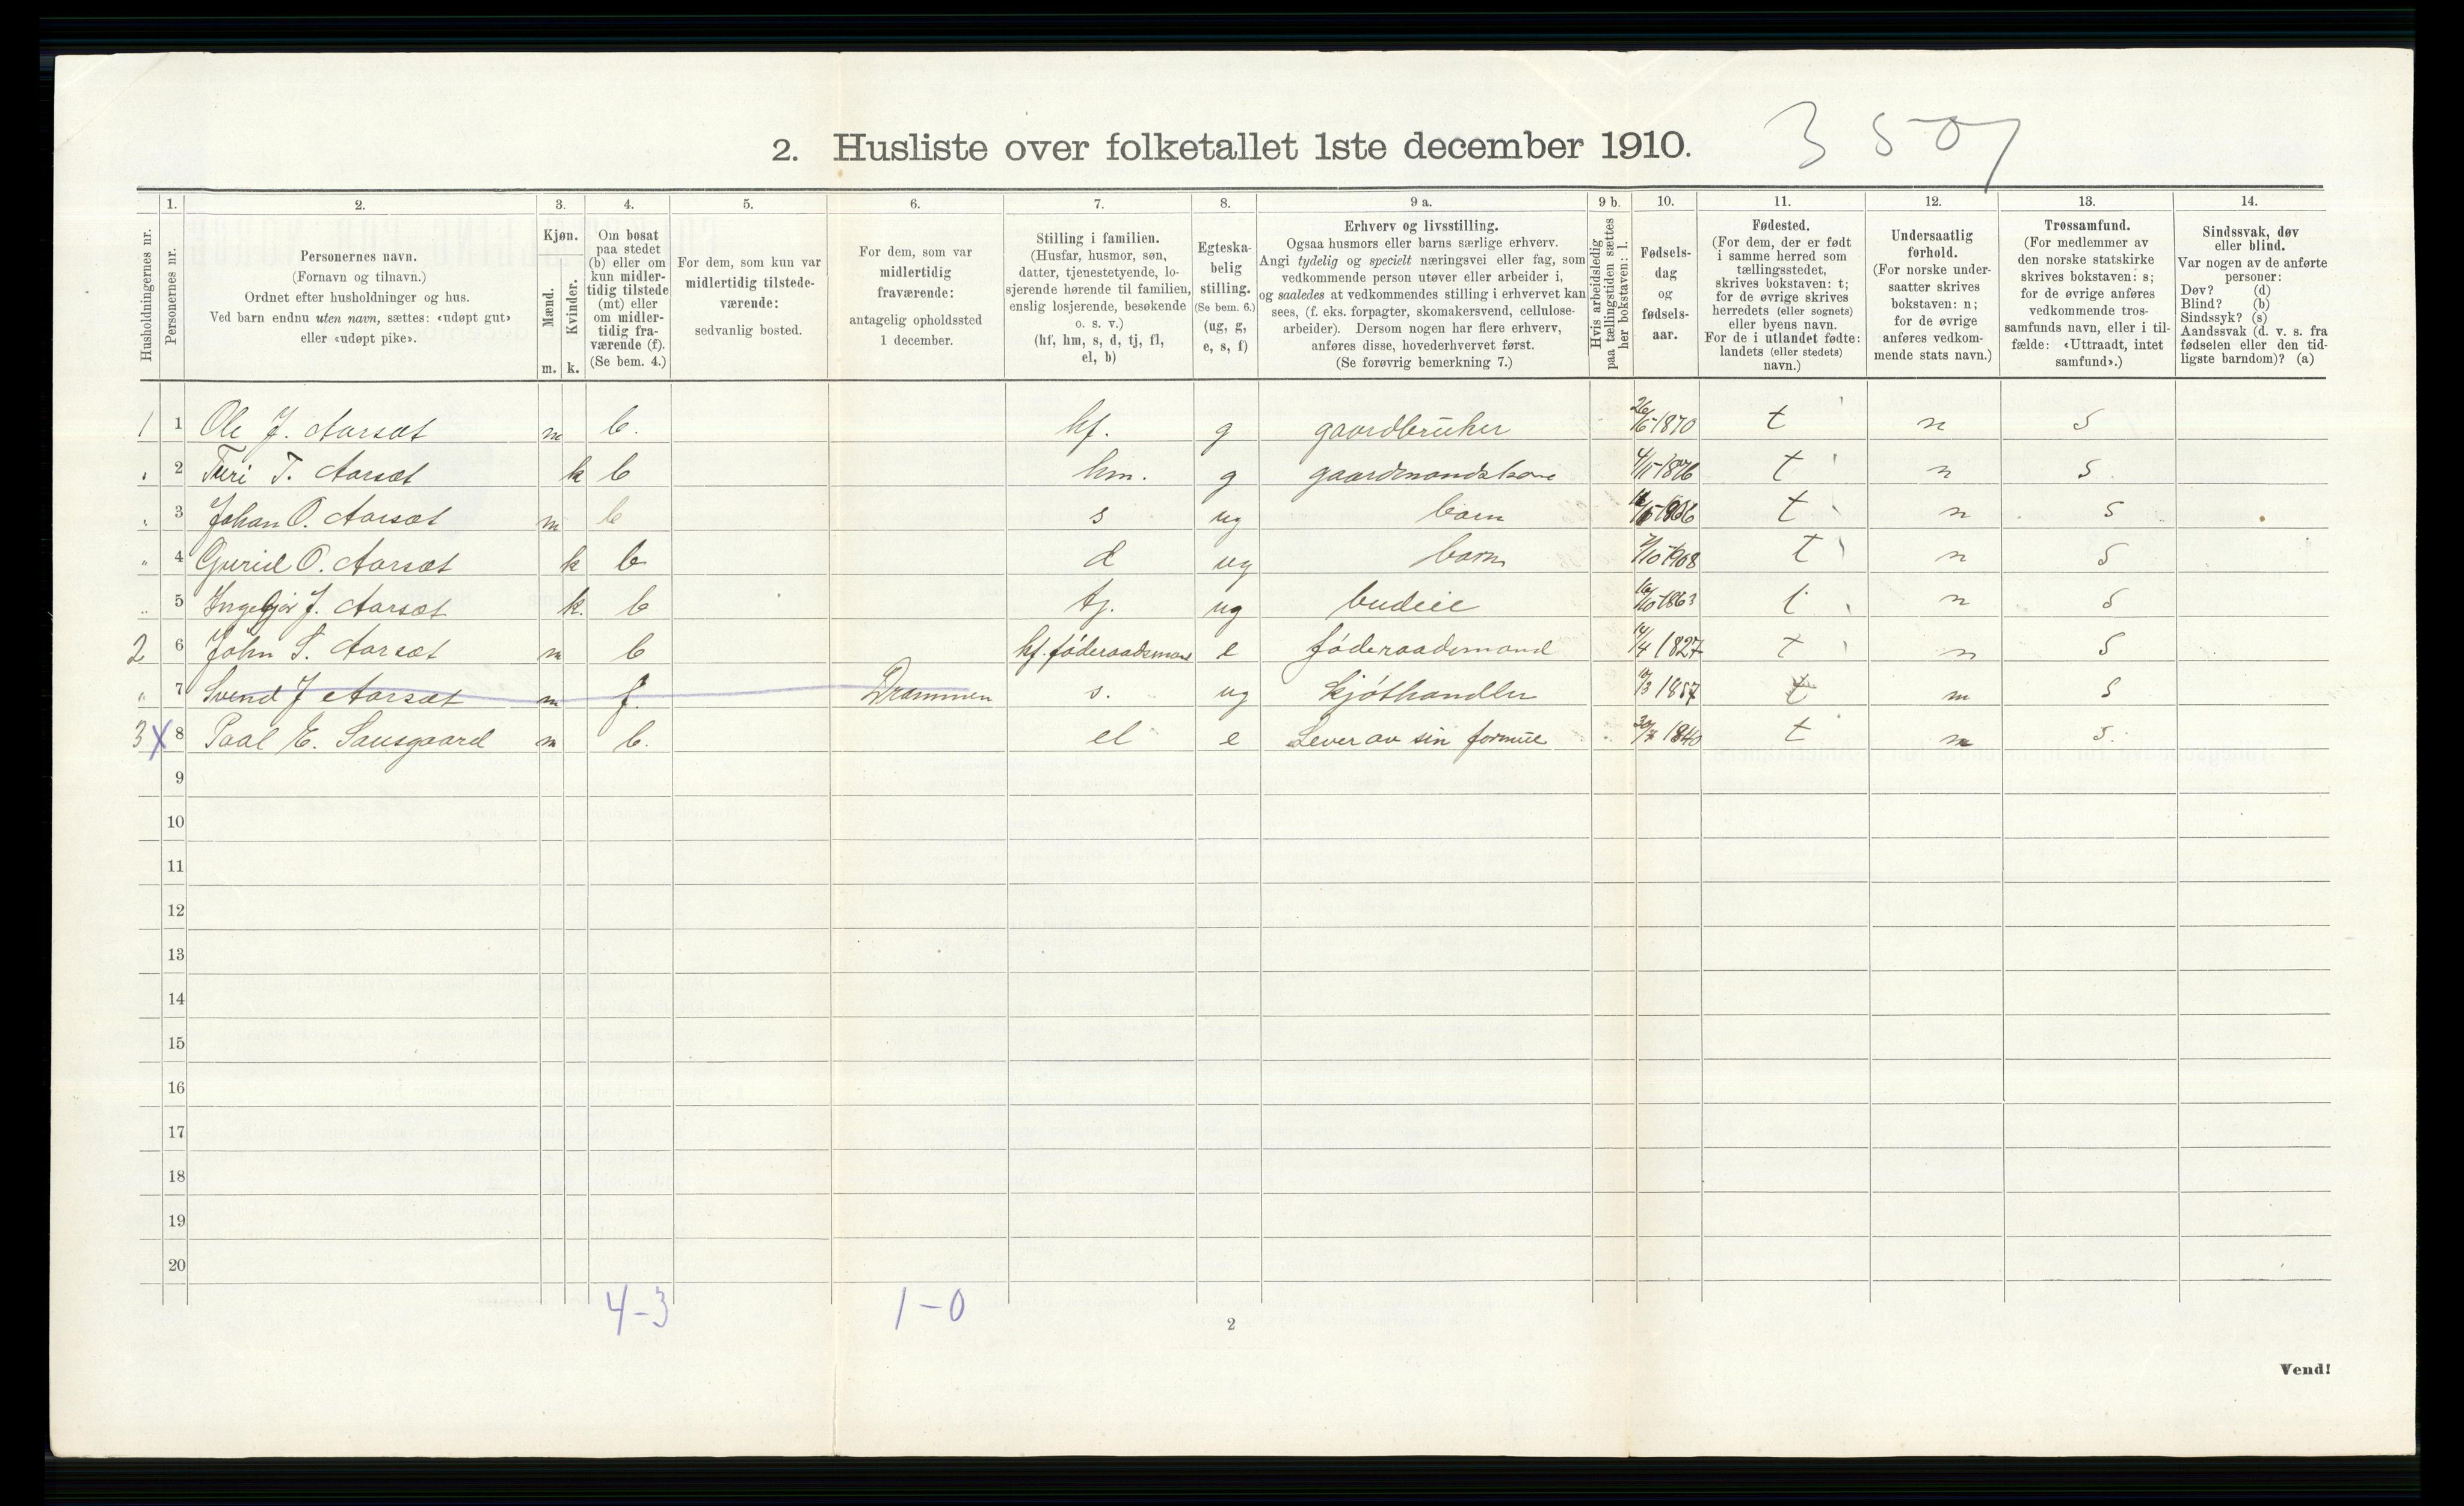 2. Husliste over folketallet 1ste december 1910.
3 507
Husholdningernes nr.
1.
Personernes nr.
2.
Personernes navn.
(Fornavn og tilnavn.)
Ordnet efter husholdninger og hus.
Ved barn endnu uten navn, sættes: «udøpt gut»
eller «udøpt pike».
3.
Kjøn.
Mænd.
Kvinder.
m. k.
4.
Om bosat
paa stedet
(b) eller om
kun midler-
tidig tilstede
(mt) eller
om midler-
tidig fra-
værende (f).
(Se bem. 4.)
5.
For dem, som kun var
midlertidig tilstede-
værende:
sedvanlig bosted.
6.
For dem, som var
midlertidig
fraværende:
antagelig opholdssted
1 december.
7.
Stilling i familien.
(Husfar, husmor, søn,
datter, tjenestetyende, lo-
sjerende hørende til familien,
enslig losjerende, besøkende
o. s. v.)
(hf, hm, s, d, tj, fl,
el, b)
8.
Egteska-
belig
stilling.
(Se bem. 6.)
(ug, g,
e, s, f)
9 a.
Erhverv og livsstilling.
Ogsaa husmors eller barns særlige erhverv.
Angi tydelig og specielt næringsvei eller fag, som
vedkommende person utøver eller arbeider i,
og saaledes at vedkommendes stilling i erhvervet kan
sees, (f. eks. forpagter, skomakersvend, cellulose-
arbeider). Dersom nogen har flere erhverv,
anføres disse, hovederhvervet først.
(Se forøvrig bemerkning 7.)
9 b.
Hvis arbeidsledig
paa tællingstiden sættes
her bokstaven: l.
10.
Fødsels-
dag
og
fødsels-
aar.
11.
Fødested.
(For dem, der er født
i samme herred som
tællingsstedet,
skrives bokstaven: t;
for de øvrige skrives
herredets (eller sognets)
eller byens navn.
For de i utlandet fødte:
landets (eller stedets)
navn.)
12.
Undersaatlig
forhold.
(For norske under-
saatter skrives
bokstaven: n;
for de øvrige
anføres vedkom-
mende stats navn.)
13.
Trossamfund.
(For medlemmer av
den norske statskirke
skrives bokstaven: s;
for de øvrige anføres
vedkommende tros-
samfunds navn, eller i til-
fælde: «Uttraadt, intet
samfund».)
14.
Sindssvak, døv
eller blind.
Var nogen av de anførte
personer:
Døv? (d)
Blind? (b)
Sindssyk? (s)
Aandssvak (d. v. s. fra
fødselen eller den tid-
ligste barndom)? (a)
1 1 Ole J. Aarsæt m b. hf. g gaardbruker 26/5-1870 t n s
" 2 Turi T. Aarsæt k b hm. g gaardmandskone t n s
" 3 Johan O. Aarsæt m b s ug barn t n s
" 4 Gurid O. Aarsæt k b d ug barn t n s
" 5 Ingebjør J. Aarsæt k. b tj. ug budeie 16/10-1863 t n s
2 6 John S. Aarsæt m b hf. føderaadsmand e føderaadsmand 14/4 1827 t n s
" 7 Svend J Aarsæt m f. Drammen s. ug kjøthandler t n s
3 X 8 Paal E. Sausgaard m b. el e Lever av sin formue 1840 t n s.
9
10
11
12
13
14
15
16
17
18
19
20
4-3 1-0
2
Vend!